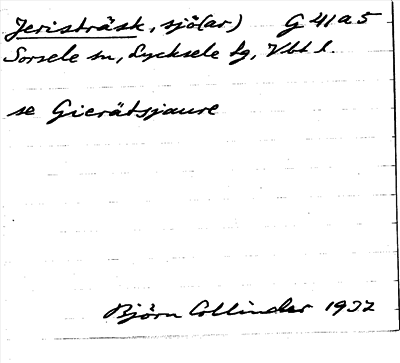 Jeristräsk, sjö(ar) G 41 a 5
Sorsele sn, Lycksele lg, Vbt l.
se Gierätsjaure
Björn Collinder 1932